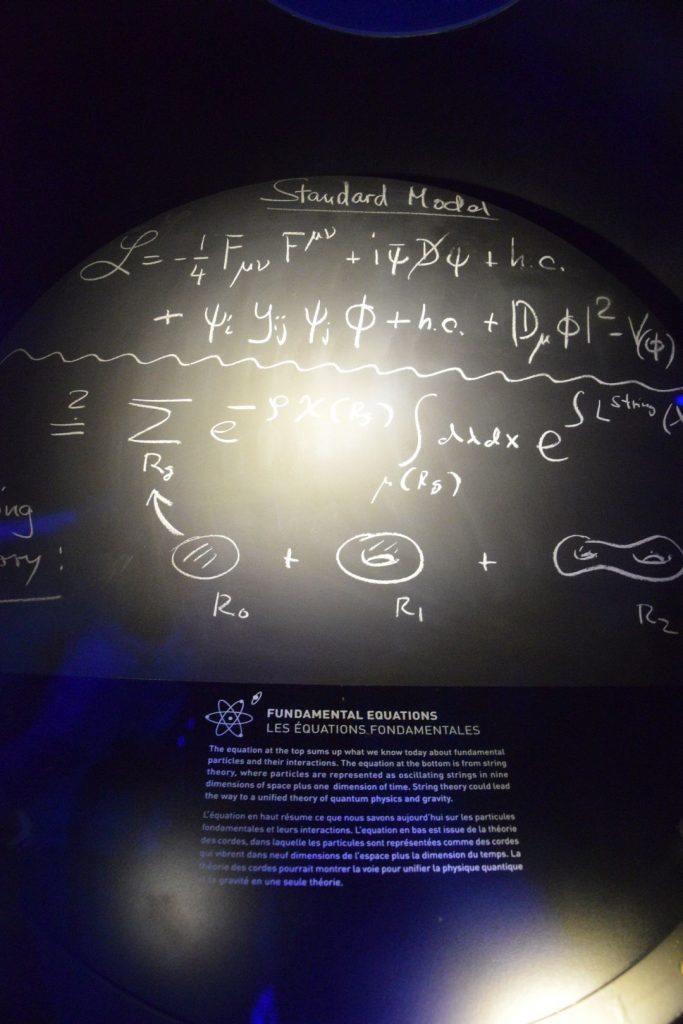 Standard Model
ℒ = -1/4 F_μν F^μν + i ψ̄ D̸ ψ + h.c.
+ ψ_i y_ij ψ_j ϕ + h.c. + |D_μ ϕ|² - V(ϕ)
≟ Σ_{R_g} e^{-φχ(R_g)} ∫_{μ(R_g)} dλdx e^{∫L^String(
R_0 + R_1 + R_2
FUNDAMENTAL EQUATIONS
LES ÉQUATIONS FONDAMENTALES
The equation at the top sums up what we know today about fundamental
particles and their interactions. The equation at the bottom is from string
theory, where particles are represented as oscillating strings in nine
dimensions of space plus one dimension of time. String theory could lead
the way to a unified theory of quantum physics and gravity.
L'équation en haut résume ce que nous savons aujourd'hui sur les particules
fondamentales et leurs interactions. L'equation en bas est issue de la théorie
des cordes, dans laquelle les particules sont représentées comme des cordes
qui vibrent dans neuf dimensions de l'espace plus la dimension du temps. La
théorie des cordes pourrait montrer la voie pour unifier la physique quantique
et la gravité en une seule théorie.